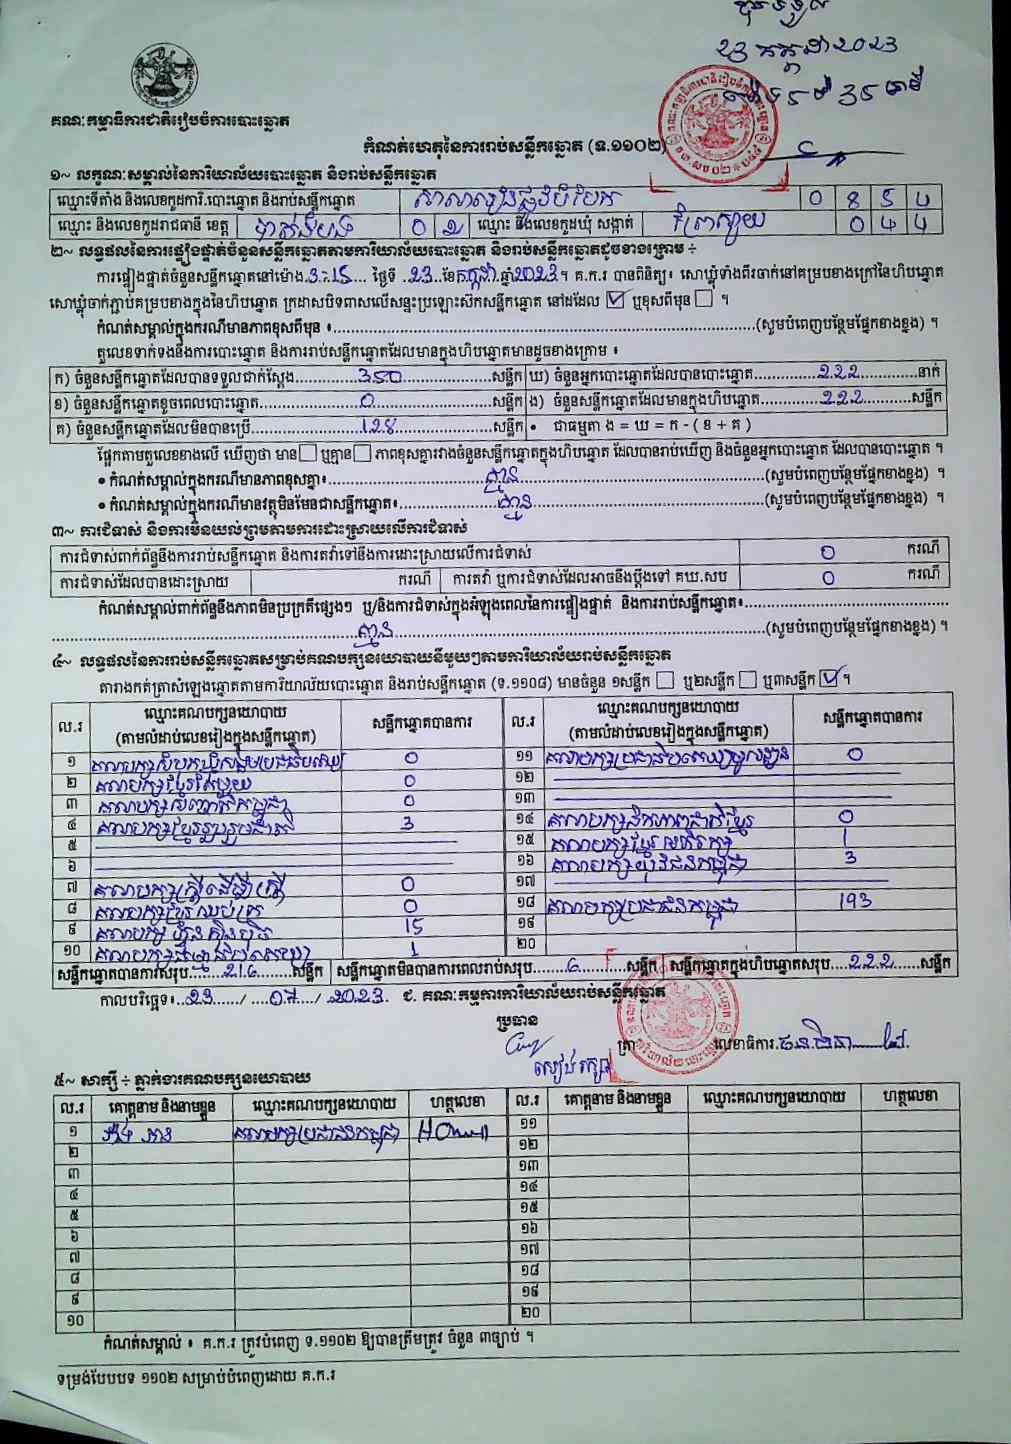 ២៣ កក្កដា ២០២៣
គណៈកម្មាធិការជាតិរៀបចំការបោះឆ្នោត
កំណត់ហេតុនៃការរាប់សន្លឹកឆ្នោត (ទ.១១០២)
១~ លក្ខណៈសម្គាល់នៃការិយាល័យបោះឆ្នោត និងរាប់សន្លឹកឆ្នោត
ឈ្មោះទីតាំង និងលេខកូដការិ.បោះឆ្នោត និងរាប់សន្លឹកឆ្នោត
ឈ្មោះ និងលេខកូដរាជធានី ខេត្ត បាត់ដំបង ០ ២ ឈ្មោះ និងលេខកូដឃុំ សង្កាត់
២~ លទ្ធផលនៃការផ្ទៀងផ្ទាត់ចំនួនសន្លឹកឆ្នោតតាមការិយាល័យបោះឆ្នោត និងរាប់សន្លឹកឆ្នោតដូចខាងក្រោម ÷
ការផ្ទៀងផ្ទាត់ចំនួនសន្លឹកឆ្នោតនៅម៉ោង 3:15 ថ្ងៃទី 23 ខែ កក្កដា ឆ្នាំ 2023។ គ.ក.រ បានពិនិត្យ៖ សោឃ្លុំទាំងពីរចាក់នៅគម្របខាងក្រៅនៃហិបឆ្នោត
សោឃ្លុំចាក់ភ្ជាប់គម្របខាងក្នុងនៃហិបឆ្នោត ក្រដាសបិទពាសលើសន្ទះប្រឡោះស៊កសន្លឹកឆ្នោត នៅដដែល ☑ ឬខុសពីមុន ☐ ។
កំណត់សម្គាល់ក្នុងករណីមានភាពខុសពីមុន ៖ (សូមបំពេញបន្ថែមផ្នែកខាងខ្នង) ។
តួលេខទាក់ទងនឹងការបោះឆ្នោត និងការរាប់សន្លឹកឆ្នោតដែលមានក្នុងហិបឆ្នោតមានដូចខាងក្រោម ៖
ក) ចំនួនសន្លឹកឆ្នោតដែលបានទទួលជាក់ស្តែង 350 សន្លឹក ឃ) ចំនួនអ្នកបោះឆ្នោតដែលបានបោះឆ្នោត 222 នាក់
ខ) ចំនួនសន្លឹកឆ្នោតខូចពេលបោះឆ្នោត 0 សន្លឹក ង) ចំនួនសន្លឹកឆ្នោតដែលមានក្នុងហិបឆ្នោត 222 សន្លឹក
គ) ចំនួនសន្លឹកឆ្នោតដែលមិនបានប្រើ 128 សន្លឹក • ជាធម្មតា ង = ឃ = ក - ( ខ + គ )
ផ្អែកតាមតួលេខខាងលើ ឃើញថា មាន ☐ ឬគ្មាន ☐ ភាពខុសគ្នារវាងចំនួនសន្លឹកឆ្នោតក្នុងហិបឆ្នោត ដែលបានរាប់ឃើញ និងចំនួនអ្នកបោះឆ្នោត ដែលបានបោះឆ្នោត ។
• កំណត់សម្គាល់ក្នុងករណីមានភាពខុសគ្នា៖ គ្មាន (សូមបំពេញបន្ថែមផ្នែកខាងខ្នង) ។
• កំណត់សម្គាល់ក្នុងករណីមានវត្ថុមិនមែនជាសន្លឹកឆ្នោត៖ គ្មាន (សូមបំពេញបន្ថែមផ្នែកខាងខ្នង) ។
៣~ ការជំទាស់ និងការមិនយល់ព្រមតាមការដោះស្រាយលើការជំទាស់
ការជំទាស់ពាក់ព័ន្ធនឹងការរាប់សន្លឹកឆ្នោត និងការតវ៉ាទៅនឹងការដោះស្រាយលើការជំទាស់ 0 ករណី
ការជំទាស់ដែលបានដោះស្រាយ ករណី ការតវ៉ា ឬការជំទាស់ដែលអាចនឹងប្តឹងទៅ គឃ.សប 0 ករណី
កំណត់សម្គាល់ពាក់ព័ន្ធនឹងភាពមិនប្រក្រតីផ្សេងៗ ឬ/និងការជំទាស់ក្នុងអំឡុងពេលនៃការផ្ទៀងផ្ទាត់ និងការរាប់សន្លឹកឆ្នោត៖
គ្មាន (សូមបំពេញបន្ថែមផ្នែកខាងខ្នង) ។
៤~ លទ្ធផលនៃការរាប់សន្លឹកឆ្នោតសម្រាប់គណបក្សនយោបាយនីមួយៗតាមការិយាល័យរាប់សន្លឹកឆ្នោត
តារាងកត់ត្រាសំឡេងឆ្នោតតាមការិយាល័យបោះឆ្នោត និងរាប់សន្លឹកឆ្នោត (ទ.១១០៨) មានចំនួន ១សន្លឹក ☐ ឬ២សន្លឹក ☐ ឬ៣សន្លឹក ☑ ។
ល.រ ឈ្មោះគណបក្សនយោបាយ (តាមលំដាប់លេខរៀងក្នុងសន្លឹកឆ្នោត) សន្លឹកឆ្នោតបានការ ល.រ ឈ្មោះគណបក្សនយោបាយ (តាមលំដាប់លេខរៀងក្នុងសន្លឹកឆ្នោត) សន្លឹកឆ្នោតបានការ
១ 0 ១១ គណបក្សប្រជាធិបតេយ្យមូលដ្ឋាន 0
២ គណបក្សខ្មែរតែមួយ 0 ១២
៣ 0 ១៣
៤ គណបក្សខ្មែររួបរួមជាតិ 3 ១៤ 0
៥ ១៥ គណបក្សខ្មែរអភិរក្ស 1
៦ ១៦ គណបក្សយុវជនកម្ពុជា 3
៧ គណបក្សស្ត្រីដើម្បីស្ត្រី 0 ១៧
៨ គណបក្សខ្មែរឈប់ក្រ 0 ១៨ គណបក្សប្រជាជនកម្ពុជា 193
៩ គណបក្សហ៊្វុនស៊ិនប៉ិច 15 ១៩
១០ 1 ២០
សន្លឹកឆ្នោតបានការសរុប 216 សន្លឹក សន្លឹកឆ្នោតមិនបានការពេលរាប់សរុប 6 សន្លឹក សន្លឹកឆ្នោតក្នុងហិបឆ្នោតសរុប 222 សន្លឹក
កាលបរិច្ឆេទ៖ 23 / 07 / 2023 ជ. គណៈកម្មការការិយាល័យរាប់សន្លឹកឆ្នោត
ប្រធាន
ត្រា លេខាធិការ
៥~ សាក្សី ÷ ភ្នាក់ងារគណបក្សនយោបាយ
ល.រ គោត្តនាម និងនាមខ្លួន ឈ្មោះគណបក្សនយោបាយ ហត្ថលេខា ល.រ គោត្តនាម និងនាមខ្លួន ឈ្មោះគណបក្សនយោបាយ ហត្ថលេខា
១ គណបក្សប្រជាជនកម្ពុជា ១១
២ ១២
៣ ១៣
៤ ១៤
៥ ១៥
៦ ១៦
៧ ១៧
៨ ១៨
៩ ១៩
១០ ២០
កំណត់សម្គាល់ ៖ គ.ក.រ ត្រូវបំពេញ ទ.១១០២ ឱ្យបានត្រឹមត្រូវ ចំនួន ៣ច្បាប់ ។
ទម្រង់បែបបទ ១១០២ សម្រាប់បំពេញដោយ គ.ក.រ